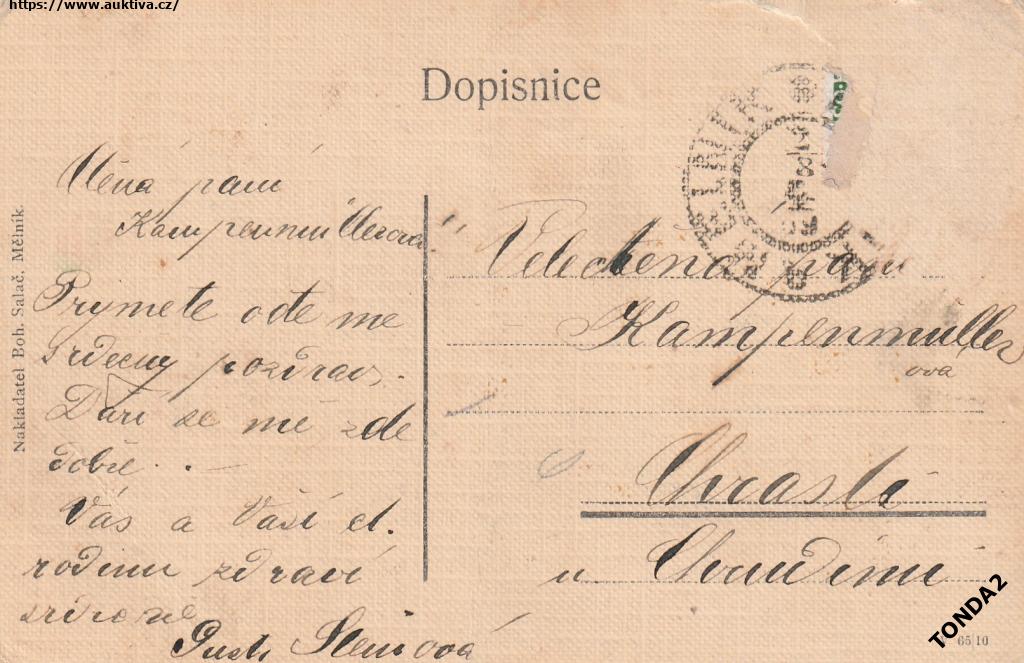 https://www.auktiva.cz/
Dopisnice
Nakladatel Boh. Salač, Mělník.
Ctěná paní
Kampenmüllerova
Prymete ode me
srdecny pozdrav.
Daří se mě zde
dobře. –
Vás a Vaší ct.
rodinu zdraví
srdečně
Slem̌ová
Velectěná paní
Kampenmüller
ova
Chrasti
u Chrudimi
MĚLNÍK
65|10
TONDA2